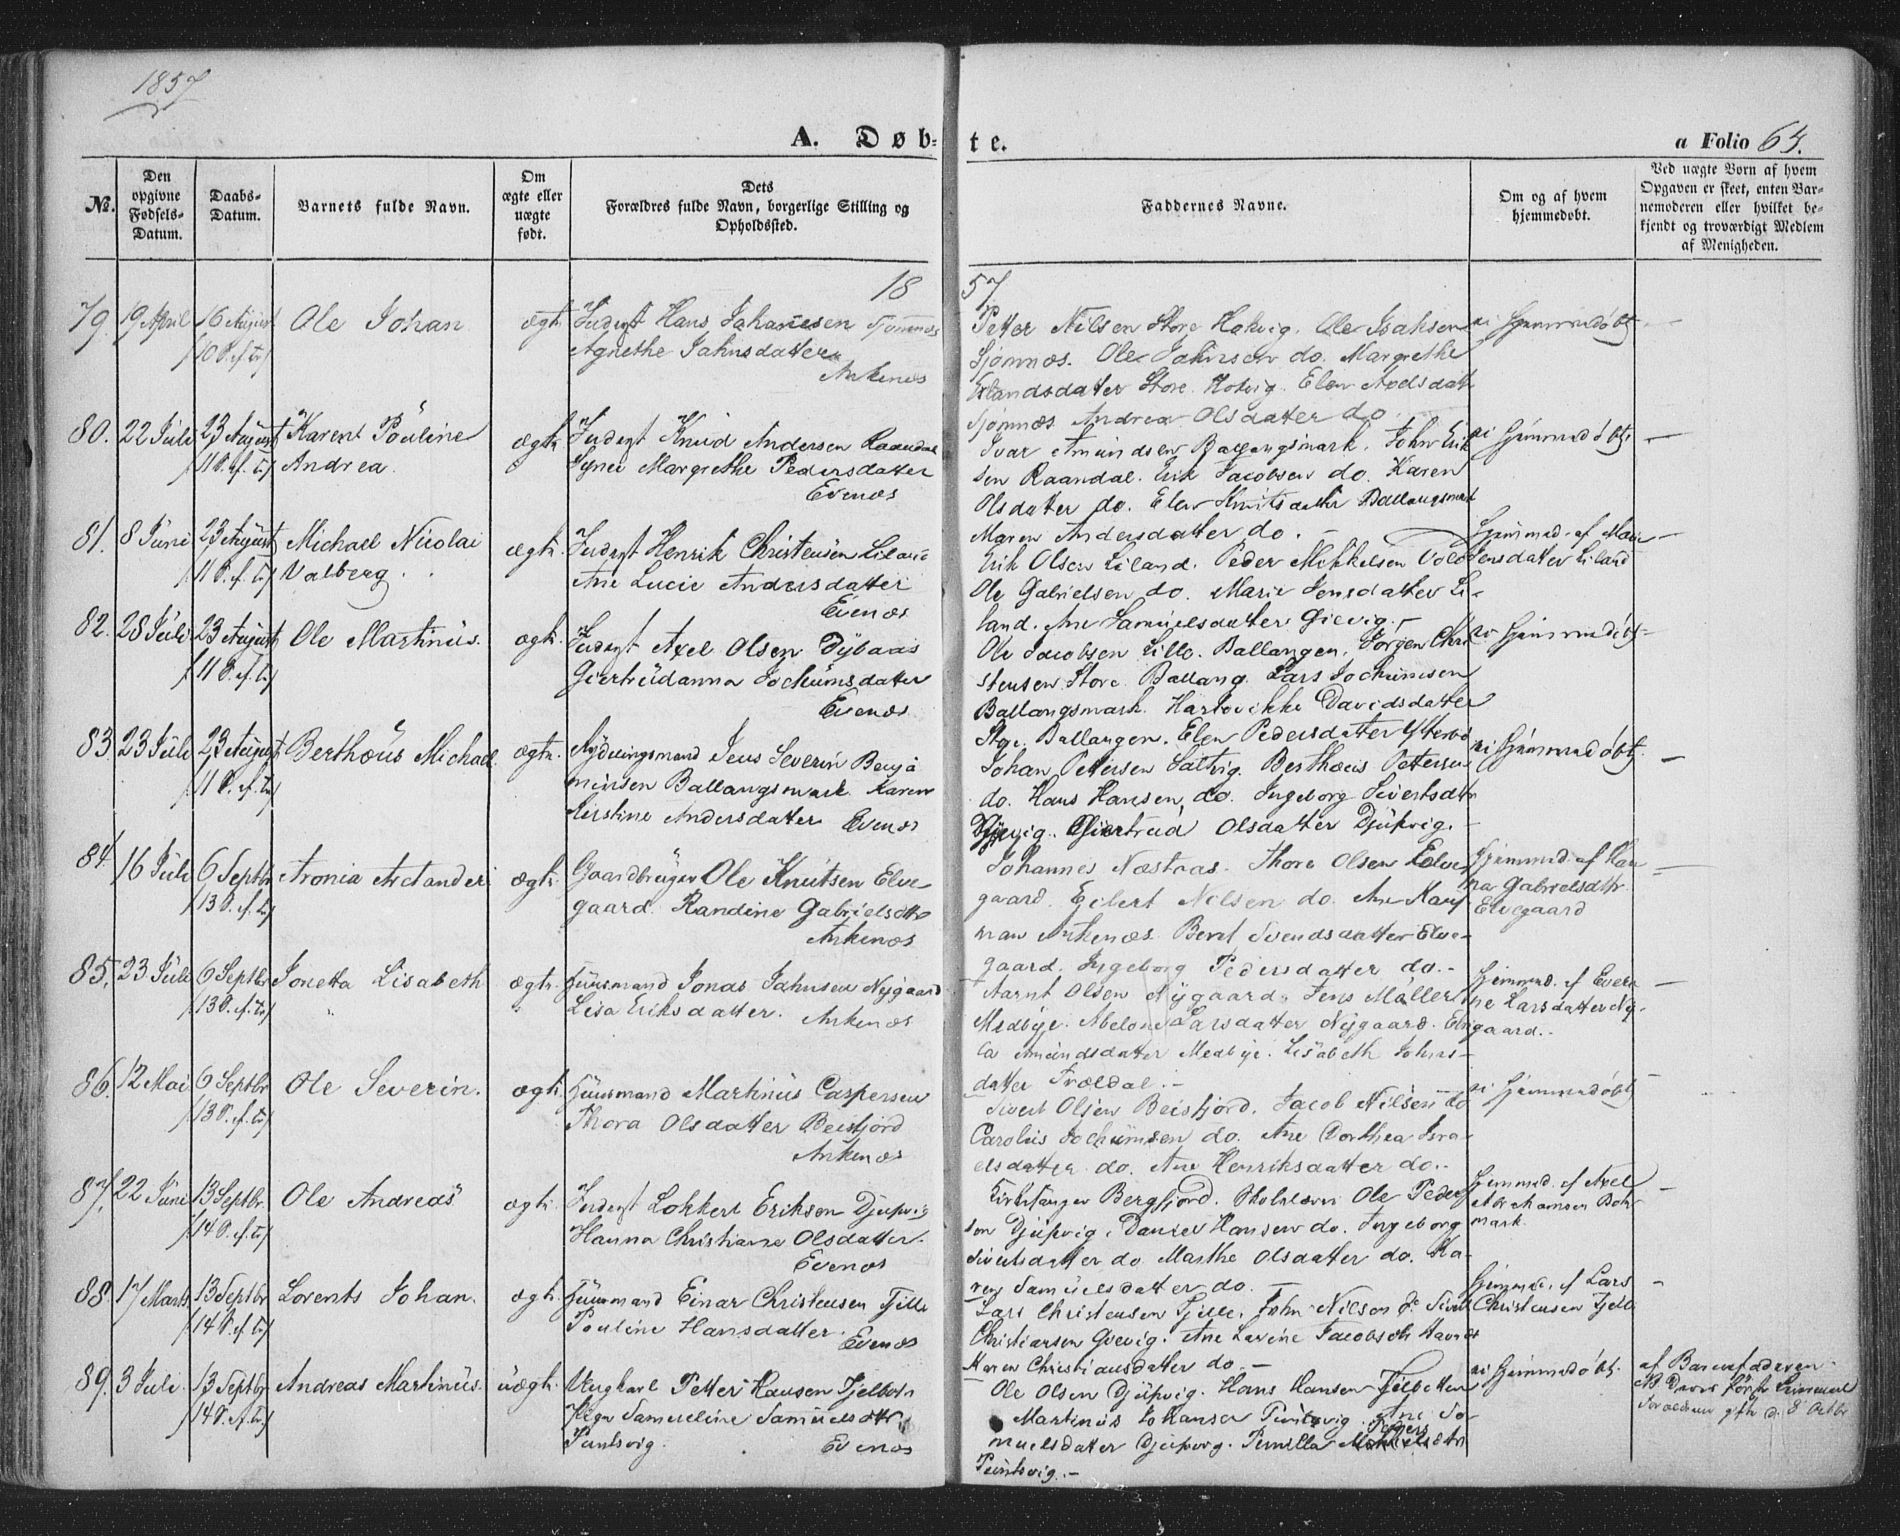 1857
A. Døb-
te.
a Folio 64.
№.
Den opgivne Fødsels-Datum.
Daabs-Datum.
Barnets fulde Navn.
Om ægte eller uægte født.
Dets Forældres fulde Navn, borgerlige Stilling og Opholdssted.
Faddernes Navne.
Om og af hvem hjemmedøbt.
Ved uægte Børn af hvem Opgaven er skeet, enten Barnemoderen eller hvilket bekjendt og troværdigt Medlem af Menigheden.
18
57
79. 19 April 16 August Ole Johan ægte Inderst Hans Johannesen
10 S. ef. Tr.
Agnethe Jahnsdatter
Ankenæs
Petter Nilsen Store Hakvig. Ole Isaksen
Sjømnæs. Ole Jahnsen do. Margrethe
Erlandsdatter Store Hokvig. Elen Axelsdatt
Sjømnæs Andrea Olsdatter do.
ei hjemmedøbt. —
80. 22 Juli 23 August Karen Pouline ægte Inderst Knud Andersen Raandal
11 S. ef. Tr. Andrea. Margrethe Pedersdatter
Evenæs
Ivar Amundsen Ballangsmark. John Erik
sen Raandal. Erik Jacobsen do. Karen
Olsdatter do. Elen Knutsdatter Ballangsmark
Maren Andersdatter do. —
ei hjemmedøbt. —
81. 8 Juni 23 August Michael Nicolai ægte Inderst Henrik Christensen Liland
11 S. ef. Tr. Valberg. Ane Lucie Andersdatter
Evenæs
Erik Olsen Liland. Peder Mikkelsen Vold
Ole Gabrielsen do. Marie Jensdatter Li-
land. Ane Samuelsdatter Gievig. —
hjemmed. af Marie
Jensdatter Liland
82. 28 Juli 23 August Ole Martinus. ægte Inderst Axel Olsen Dybaas
11 S. ef. Tr. Giertrudanna Jochumsdatter
Evenæs
Ole Jacobsen Lille Ballangen. Jørgen Chri
stensen Store Ballang. Lars Jochumsen
Ballangsmark. Hartvikke Davidsdatter
Store Ballangen. Elen Pedersdatter
ei hjemmedøbt —
83. 23 Juli 23 August Berthæus Michael ægte Rydningsmand Jens Severin Benja
11 S. ef. Tr. minsen Ballangsmark Karen
Kirstine Andersdatter Evenæs
Johan Pettersen Saltvig. Berthæus Pettersen
do. Hans Hansen do. Ingeborg Sivertsdtr
Giertrud Olsdatter Djupvig. —
ei hjemmedøbt. —
84. 16 Juli 6 Septbr Aronia Arctander ægte Gaardbruger Ole Knutsen Elve-
13 S. ef. Tr. gaard. Randine Gabrielsdtr
Ankenæs
Johannes Næstraas. Thore Olsen Elve
gaard. Eilert Nilsen do. Ane Kauf
man Ankenæs. Beret Svendsdatter Elve-
gaard. Ingeborg Pedersdatter do. —
hjemmed. af Han
na Gabrielsdtr
Elvegaard
85. 23 Juli 6 Septbr Jonetta Lisabeth ægte Huusmand Jonas Jahnsen Nygaard
13 S. ef. Tr. Lisa Eriksdatter. Ankenæs
Aarnt Olsen Nygaard. Jens Møller
Medbye. Abelone Larsdatter Nygaard. Eli
sa Amundsdatter Medbye. Lisabeth Johns-
datter Trældal. —
hjemmed. af Evere
ne Larsdatter Ny-
gaard. —
86. 12 Mai 6 Septbr Ole Severin. ægte Huusmand Martinus Caspersen
13 S. ef. Tr. Thora Olsdatter Beisfjord
Ankenæs
Sivert Olsen Beisfjord. Jacob Nilsen do
Carolus Jochumsen do. Ane Dorthea Isra-
elsdatter do. Ane Henriksdatter do. —
ei hjemmedøbt —
87. 22 Juni 13 Septbr Ole Andreas ægte Inderst Lokkert Eriksen Djupvig
14 S. ef. Tr. Hanna Christianse Olsdatter
Evenæs
Kirkesanger Bergfjord. Skolelærer Ole Peder
sen Djupvig. Daniel Hansen do. Ingeborg
Sivertsdatter do. Marthe Olsdatter do. Ka-
ren Samuelsdatter do. —
hjemmed. af Axel
Abrahamsen
mark. —
88. 17 Marts 13 Septbr Lorents Johan. ægte Huusmand Einar Christensen Fjelle
14 S. ef. Tr. Pouline Hansdatter. Evenæs
Lars Christensen Fjelle. John Nilsen do Sivert
Christiansen Gievig. Ane Lavine Jacobsdtr
Karen Christiansdatter do. —
hjemmed. af Lars
Christensen Fjelle
89. 3 Juli 13 Septbr Andreas Martinus. uægte Ungkarl Petter Hansen
14 S. ef. Tr. Pige Samueline Samuelsdtr
Evenæs
Ole Olsen Djupvig. Hans Hansen
Martinus Johansen Ane Sa-
muelsdatter Djupvig. Pernilla Peders
ei hjemmedøbt.
af Barnefaderen.